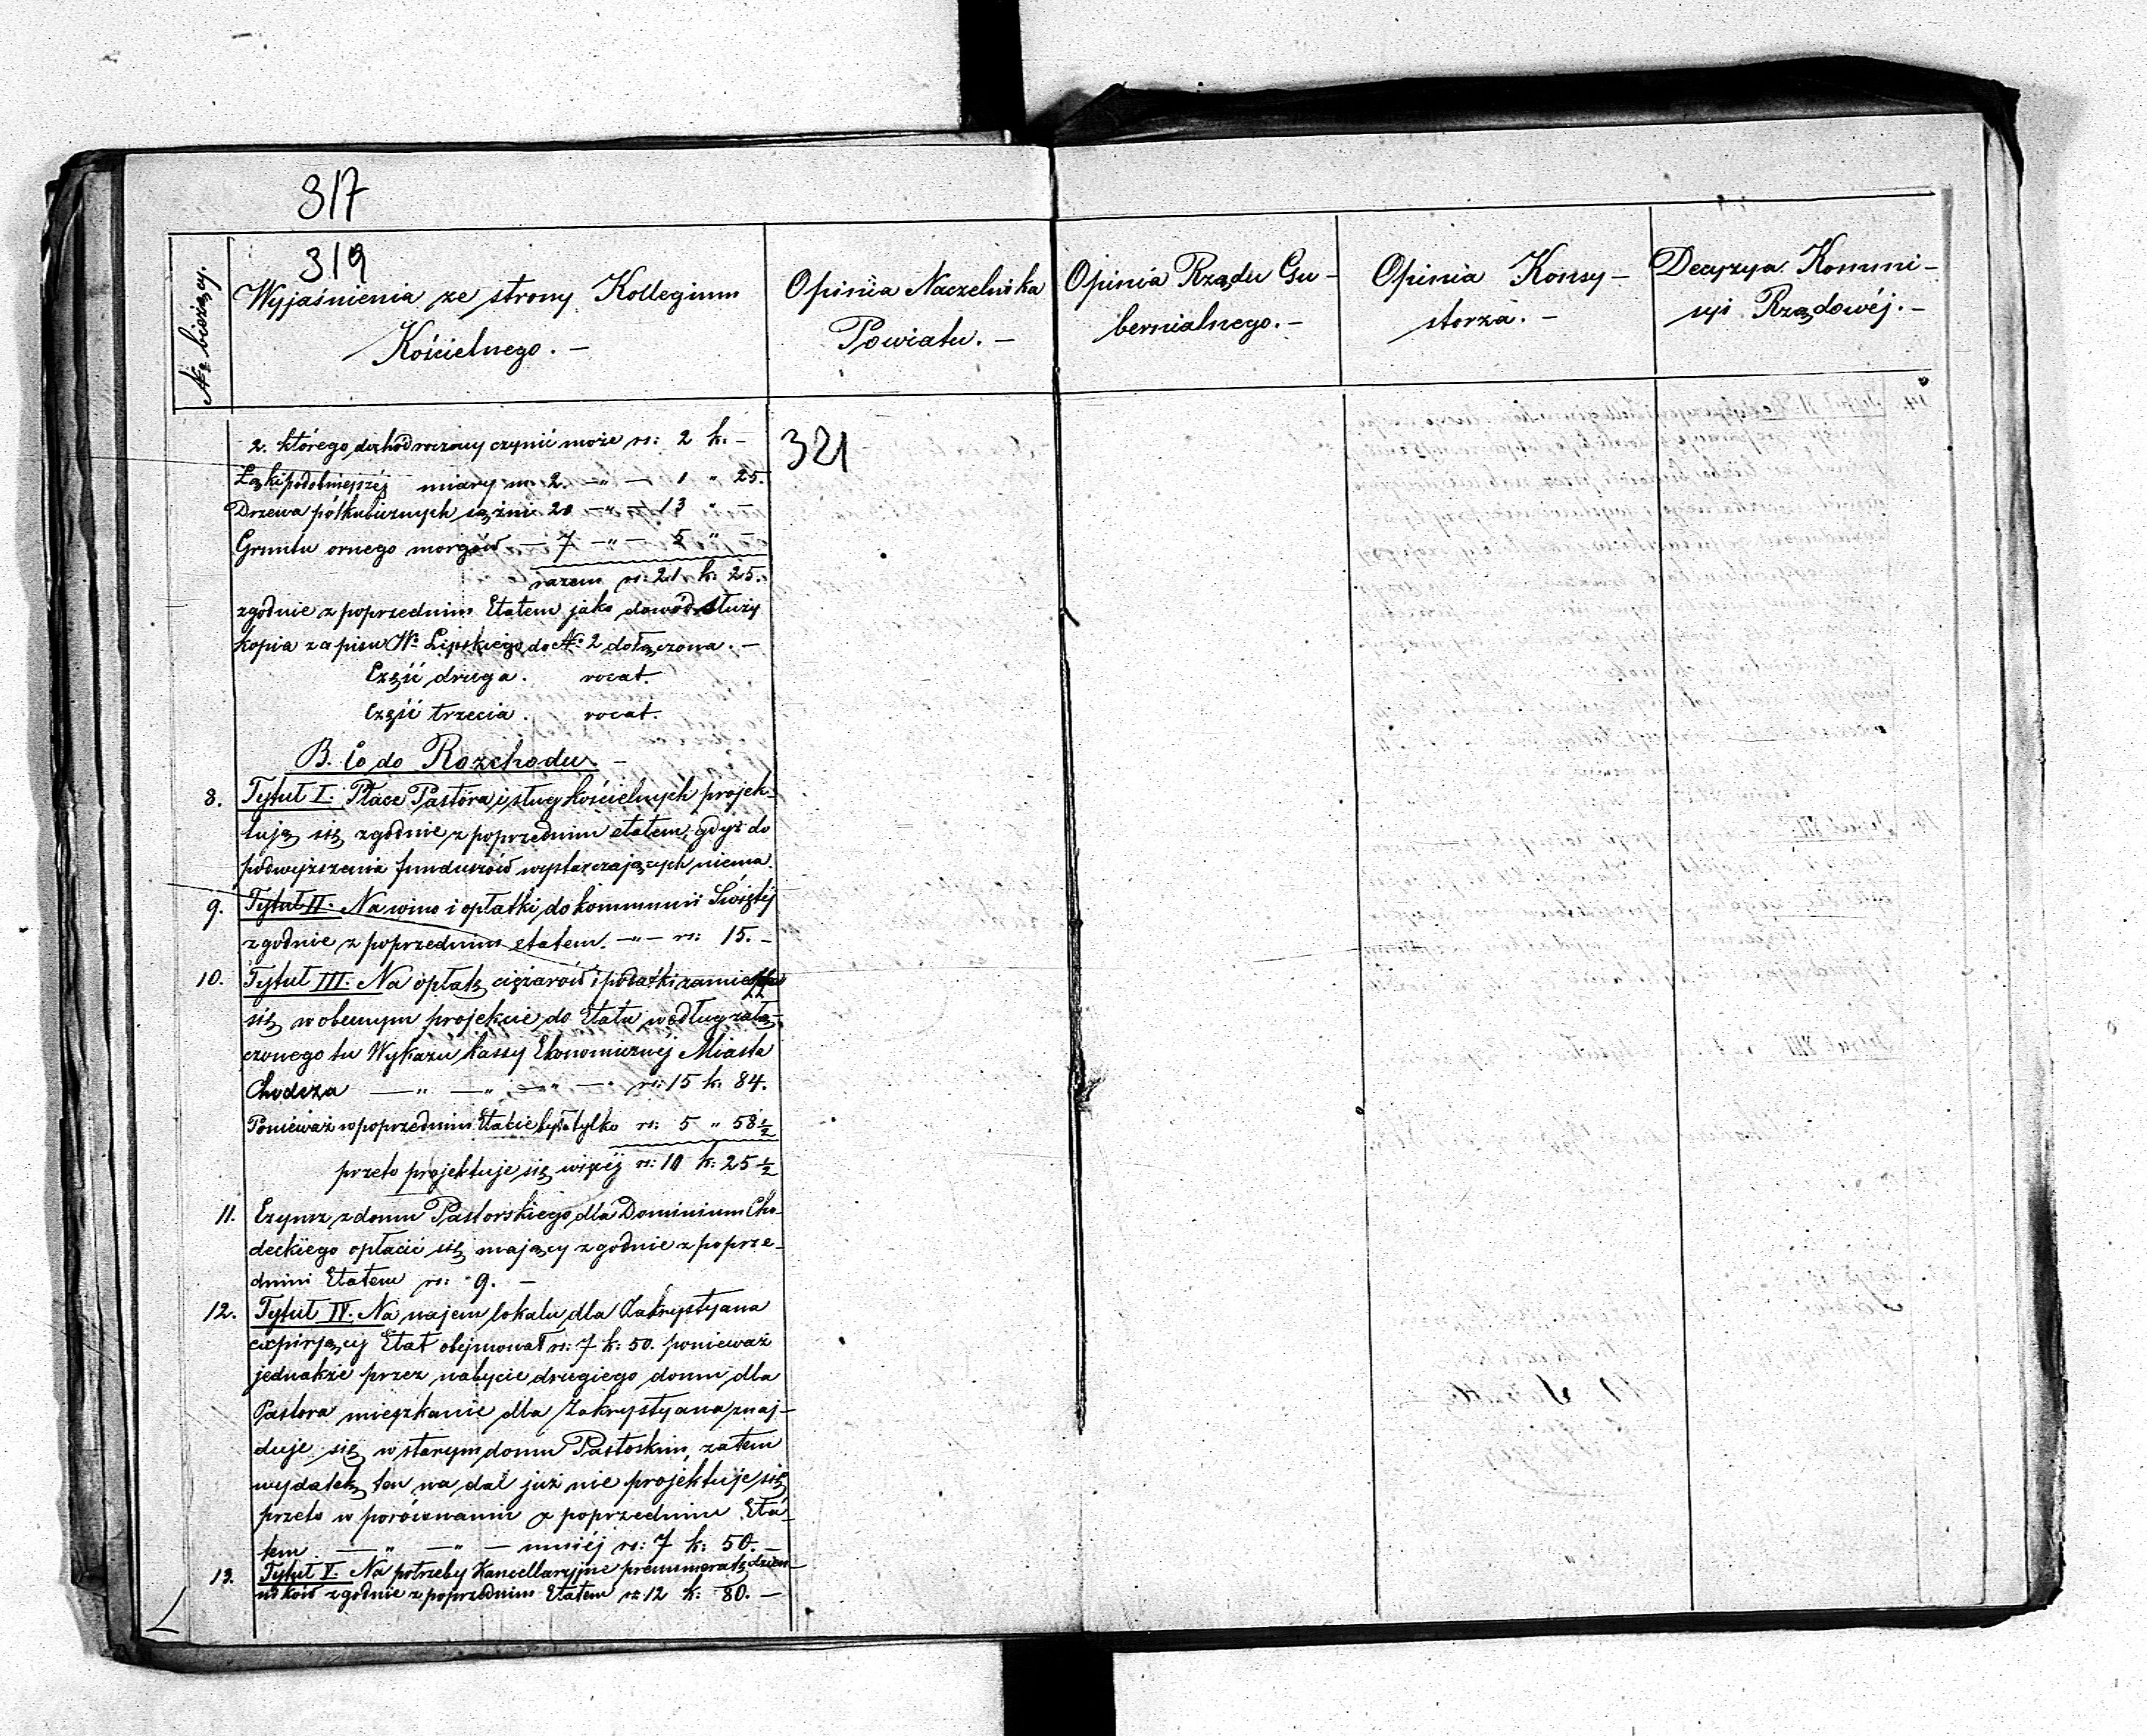 317
319
№ bieżący.
Wyjaśnienia ze strony Kollegium
Kościelnego. —
Opinia Naczelnika
Powiatu. —
Opinia Rządu Gu-
bernialnego. —
Opinia Konsy-
storza. —
Decyzya Kommi-
syi Rządowéj. —
321
2. którego dochód roczny czynić może rs: 2 k. —
Łąki podobniejszéj miary m. 2. —„— 1 „ 25.
Drzewa półkubicznych sążni 20 —„— 13 „ —
Gruntu ornego morgów — 7 —„— 5 „ —
razem rs: 21 k: 25.
zgodnie z poprzednim Etatem jako dowód służy
kopia zapisu W. Lipskiego do № 2 dołączona. —
Część druga. vocat.
Część trzecia. vocat.
B. Co do Rozchodu. —
8. Tytuł I. Płace Pastora i sług kościelnych projek-
tują się zgodnie z poprzednim etatem, gdyż do
podwyższenia funduszów wystarczających niema.
9. Tytuł II. Na wino i opłatki do kommunii Świętéj
zgodnie z poprzednim etatem. —„— rs: 15. —
10. Tytuł III. Na opłatę ciężarów i podatki
się w obecnym projekcie do Etatu według załą-
czonego tu Wykazu kassy Ekonomicznéj Miasta
Chodcza —„ —„ —„ —„ rs: 15 k. 84.
Ponieważ w poprzednim Etacie było tylko rs: 5 „ 58½
przeto projektuje się więcéj rs: 10 k: 25½
11. Czynsz z domu Pastorskiego dla Dominium Cho-
deckiego opłacić się mający zgodnie z poprze-
dnim Etatem rs: 9. —
12. Tytuł IV. Na najem lokalu dla Zakrystyana
expirjący Etat obejmował rs: 7 k: 50. ponieważ
jednakże przez nabycie drugiego domu dla
Pastora mieszkanie dla Zakrystyana znaj-
duje się w starym domu Pastoskim, zatem
wydatek ten na dal już nie projektuje się
przeto w porównaniu z poprzednim Eta-
tem —„ —„ — mniéj rs: 7 k: 50. —
13. Tytuł V. Na potrzeby Kancellaryjne prenumeratę dzien-
ników zgodnie z poprzednim Etatem rs 12 k: 80. —